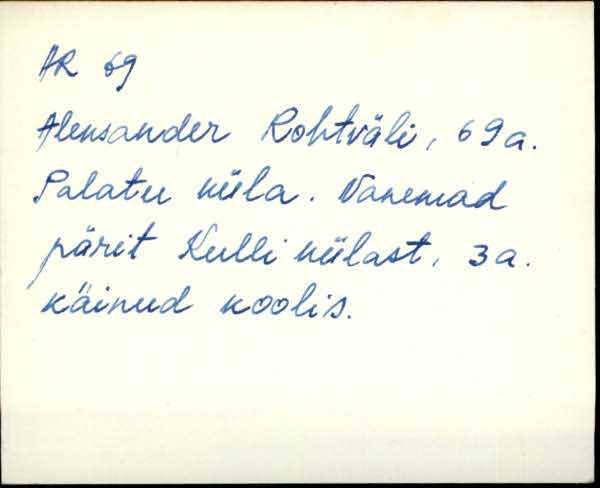 AR 69
Aleksander Rohtväli, 69a.
Palatu küla. Vanemad
pärit Kulli külast, 3a.
käinud koolis.